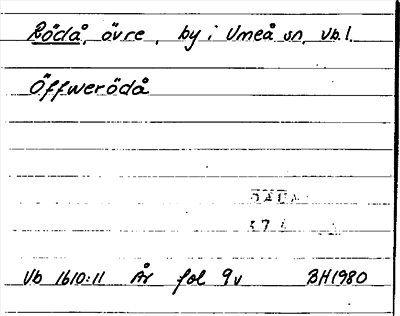 Rödå, övre, by i Umeå sn, Vb.l.
Öffwerödå
Vb 1610:11 År fol 9v BH1980